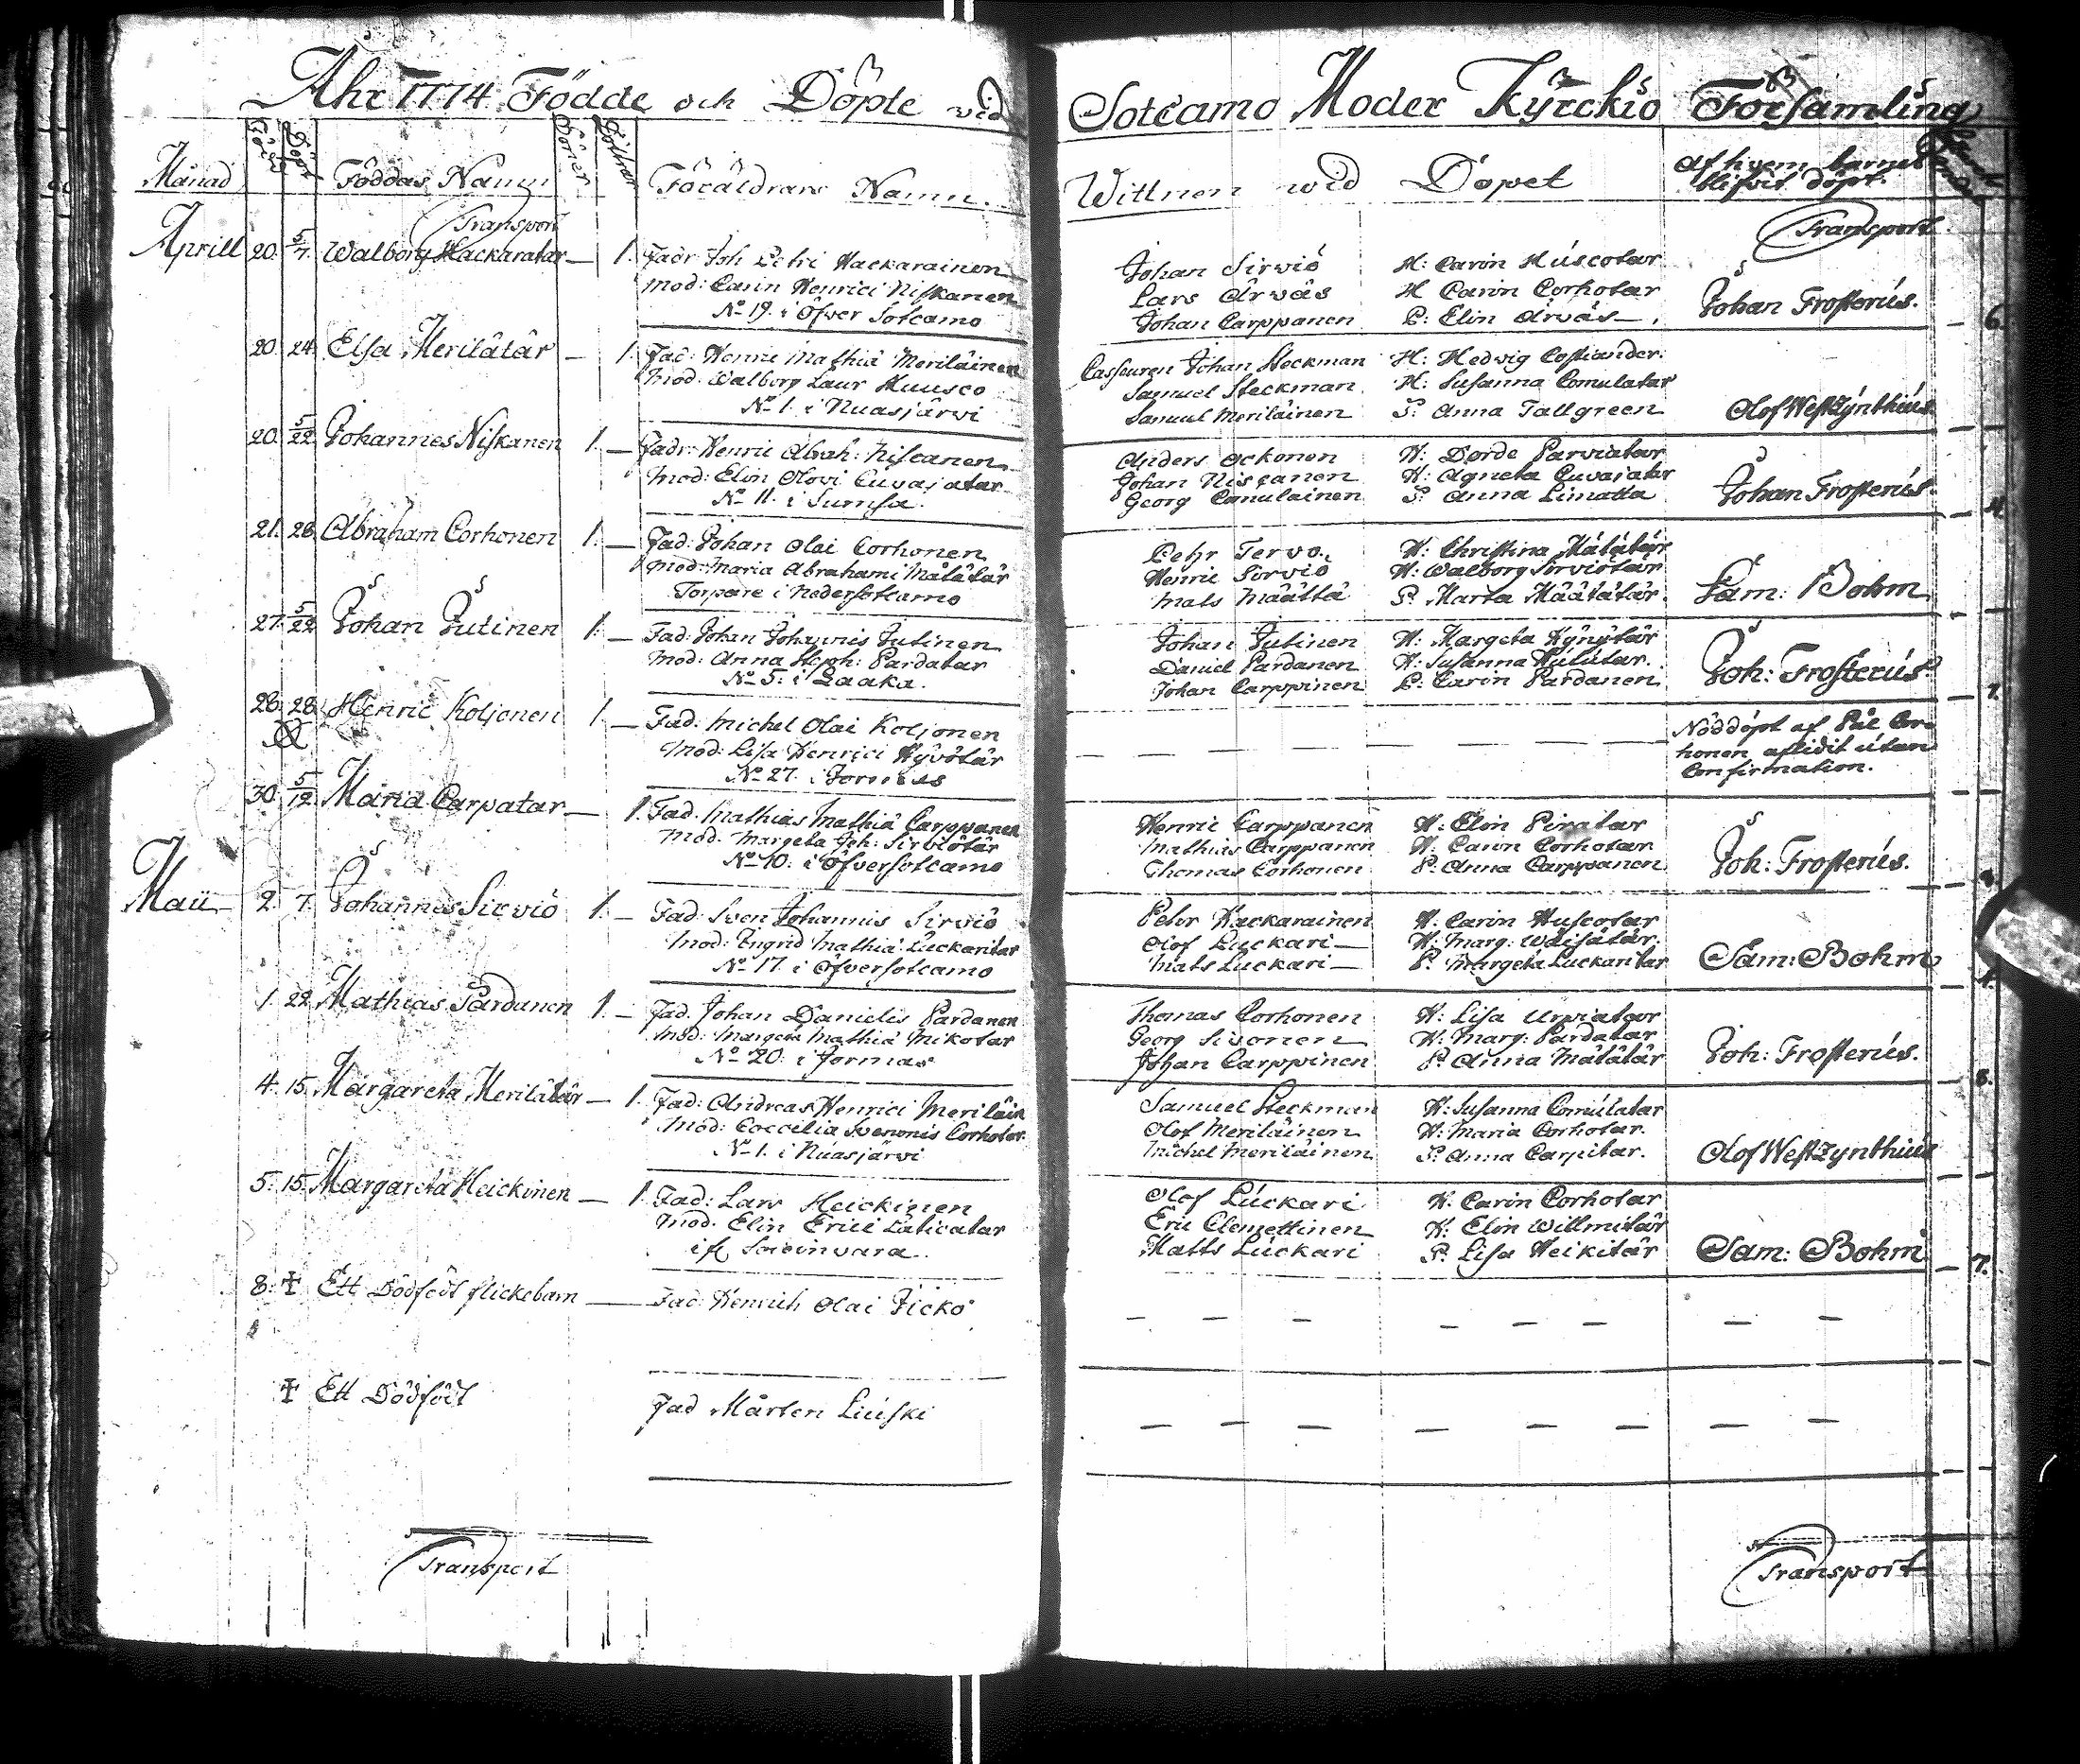 Åhr 1774 Födde och Döpte wid
Månad Född Döpt Föddas Namn Söner Döttrar Föräldrars Namn.
Transport
Aprill 20. 5/7. Walborg Hackaratar — 1. Fadr: Joh Petri Hackarainen
Mod: Carin Henrici Niskanen
No 19. i Öfver Sotcamo
20. 24. Elsa Merilätär — 1. Fad: Henric Mathiä Meriläinen
Mod: Walborg Laur Huusco
No 1. i Nuasjärvi
20. 5/22. Johannes Niskanen 1. — Fadr: Henric Abrah: Niscanen
Mod: Elin Olovi Cuvajatar
No 11. i Sumsa.
21. 28. Abraham Corhonen 1. — Fad: Johan Olai Corhonen
Mod: Maria Abrahami Mätätär
Torpare i Nedersotcamo
27. 5/22. Johan Jutinen 1. — Fad: Johan Johannis Jutinen
Mod: Anna Steph: Pardatar
No 5. i Laaka.
28. 28. Henric Koljonen 1. — Fad: Michel Olai Koljonen
Mod: Lisa Henrici Hyvötär
No 27. i Jormas
30. 5/12. Maria Carpatar — 1. Fad. Mathias Mathiä Carppanen
Mod. Margeta Joh: Sirviötär
No 10. i Öfversotcamo
Maii 2. 7. Johannes Sirviö 1. — Fad: Sven Johannis Sirviö
Mod: Ingrid Mathiä Luckaritar
No 17. i Öfversotcamo
1. 22. Mathias Pardanen 1. — Fad. Johan Danielis Pardanen
Mod: Margeta Mathiä Mikotar
No 20. i Jormas
4. 15. Margareta Merilätär — 1. Fad: Andreas Henrici Meriläin
Mod: Coecilia Svenonis Corhotar
No 1. i Nuasjärvi
5. 15. Margareta Heickinen — 1. Fad: Lars Heickinen
Mod. Elin Erici
8. † Ett Dödfödt flickebarn — Fad: Henrich Olai Picko
† Ett Dödfödt Fad Mårten Liuski
Transport
Sotcamo Moder Kyrckio Församling
Wittnen wid Döpet Af hvem barnet
blifvit döpt.
Transport
Johan Sirviö H: Carin Huscotar
Lars Ärväs H Carin Corhotar
Johan Carppanen P: Elin Ärväs — Johan Frosterus. 6.
Johan Steckman H: Hedwig
Samuel Steckman H: Susanna Comulatar
Samuel Meriläinen P: Anna Tallgreen Olof Westzynthius
Anders Ockonen H: Dorde Parviatar
Johan Niscanen H: Agneta Cuvajatar
Georg Comulainen P: Anna Limatta Johan Frosterus.
Pehr Tervo. H: Christina Mätätär
Henric Sirviö H: Walborg Sirviötär
Mats Määttä P. Marta Määtätär. Sam: Bohm
Johan Jutinen H: Margeta Kynytär
Daniel Pardanen H: Susanna
Johan Carppinen P: Carin Pardanen Joh: Frosterus.
Nöddöpt af Pål Cor-
honen aflidit utan
Confirmation.
Henric Carppanen H: Elin Piratar
Mathias Carppanen H: Carin Corhotar
Thomas Corhonen P: Anna Carppanen Joh: Frosterus.
Pehr Hackarainen H. Carin Huscotar
Olof Luckari — H: Marg: Wäisätär.
Mats Luckari — P. Margeta Luckaritar Sam: Bohm
Thomas Corhonen H: Lisa Urviatar
Georg Sivonen H: Marg: Pardatar
Johan Carppinen P. Anna Mätätär Joh: Frosterus. 8.
Samuel Steckman H: Susanna Comulatar
Olof Meriläinen H: Maria Corhotar.
Michel Meriläinen P. Anna Carpitar. Olof Westzynthius
Olof Luckari H: Carin Corhotar
Eric Clemettinen H: Elin Willmitär
Matts Luckari P. Lisa Heikitär Sam: Bohm 7.
Transport